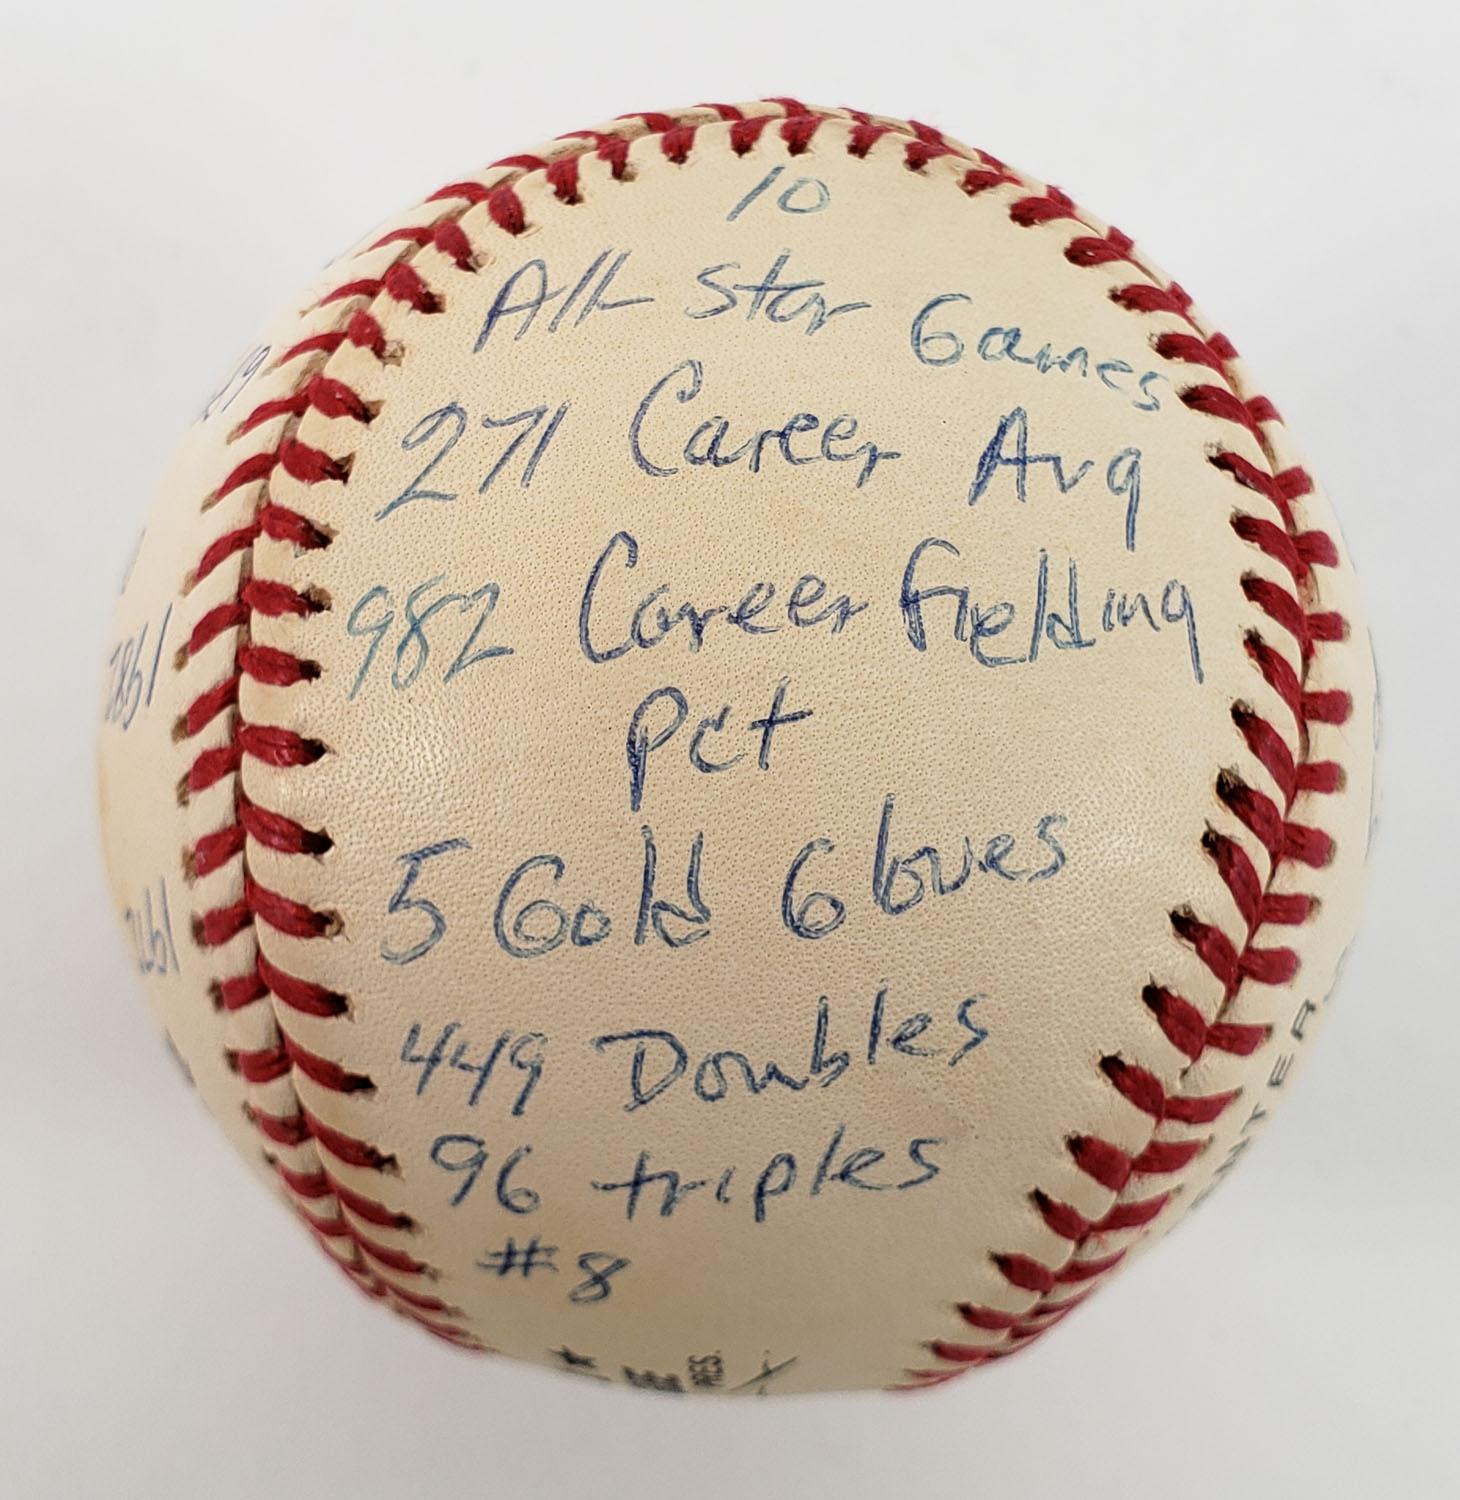 10
All Star Games
271 Career Avg
982 Career Fielding
Pct
5 Gold Gloves
449 Doubles
96 triples
#8
1982
197
RES.